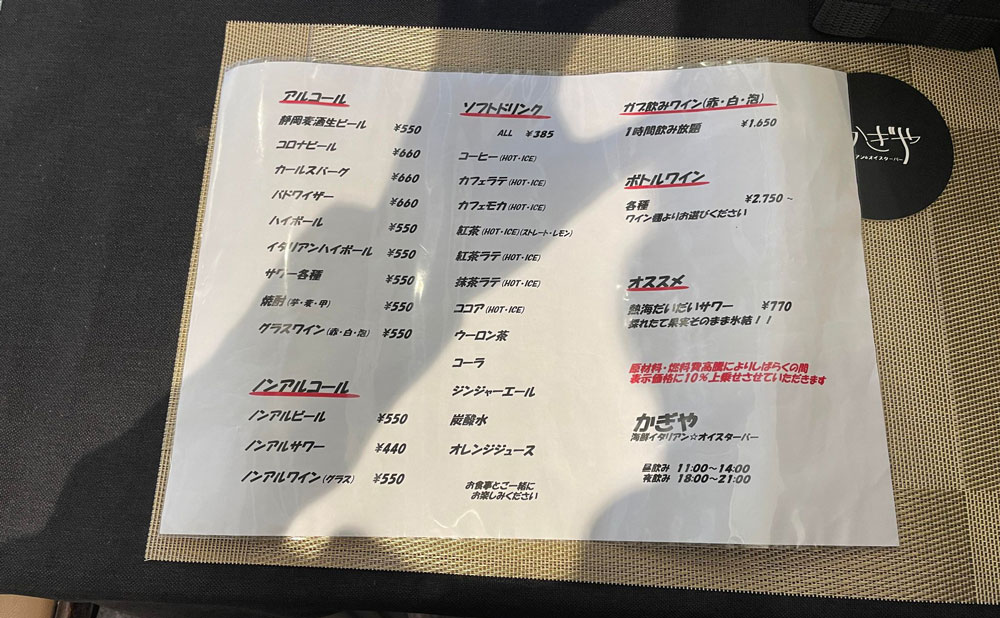 アルコール
静岡麦酒生ビール ¥550
コロナビール ¥660
カールスバーグ ¥660
バドワイザー ¥660
ハイボール ¥550
イタリアンハイボール ¥550
サワー各種 ¥550
焼酎(芋・麦・甲) ¥550
グラスワイン(赤・白・泡) ¥550
ノンアルコール
ノンアルビール ¥550
ノンアルサワー ¥440
ノンアルワイン(グラス) ¥550
ソフトドリンク
ALL ¥385
コーヒー(HOT・ICE)
カフェラテ(HOT・ICE)
カフェモカ(HOT・ICE)
紅茶(HOT・ICE)(ストレート・レモン)
紅茶ラテ(HOT・ICE)
抹茶ラテ(HOT・ICE)
ココア(HOT・ICE)
ウーロン茶
コーラ
ジンジャーエール
炭酸水
オレンジジュース
お食事とご一緒に
お楽しみください
ガブ飲みワイン(赤・白・泡)
1時間飲み放題 ¥1,650
ボトルワイン
各種 ¥2,750~
ワイン棚よりお選びください
オススメ
熱海だいだいサワー ¥770
採れたて果実そのまま氷結!!
原材料・燃料費高騰によりしばらくの間
表示価格に10%上乗せさせていただきます
かぎや
海鮮イタリアン☆オイスターバー
昼飲み 11:00~14:00
夜飲み 18:00~21:00
ぎや
アン&オイスターバー